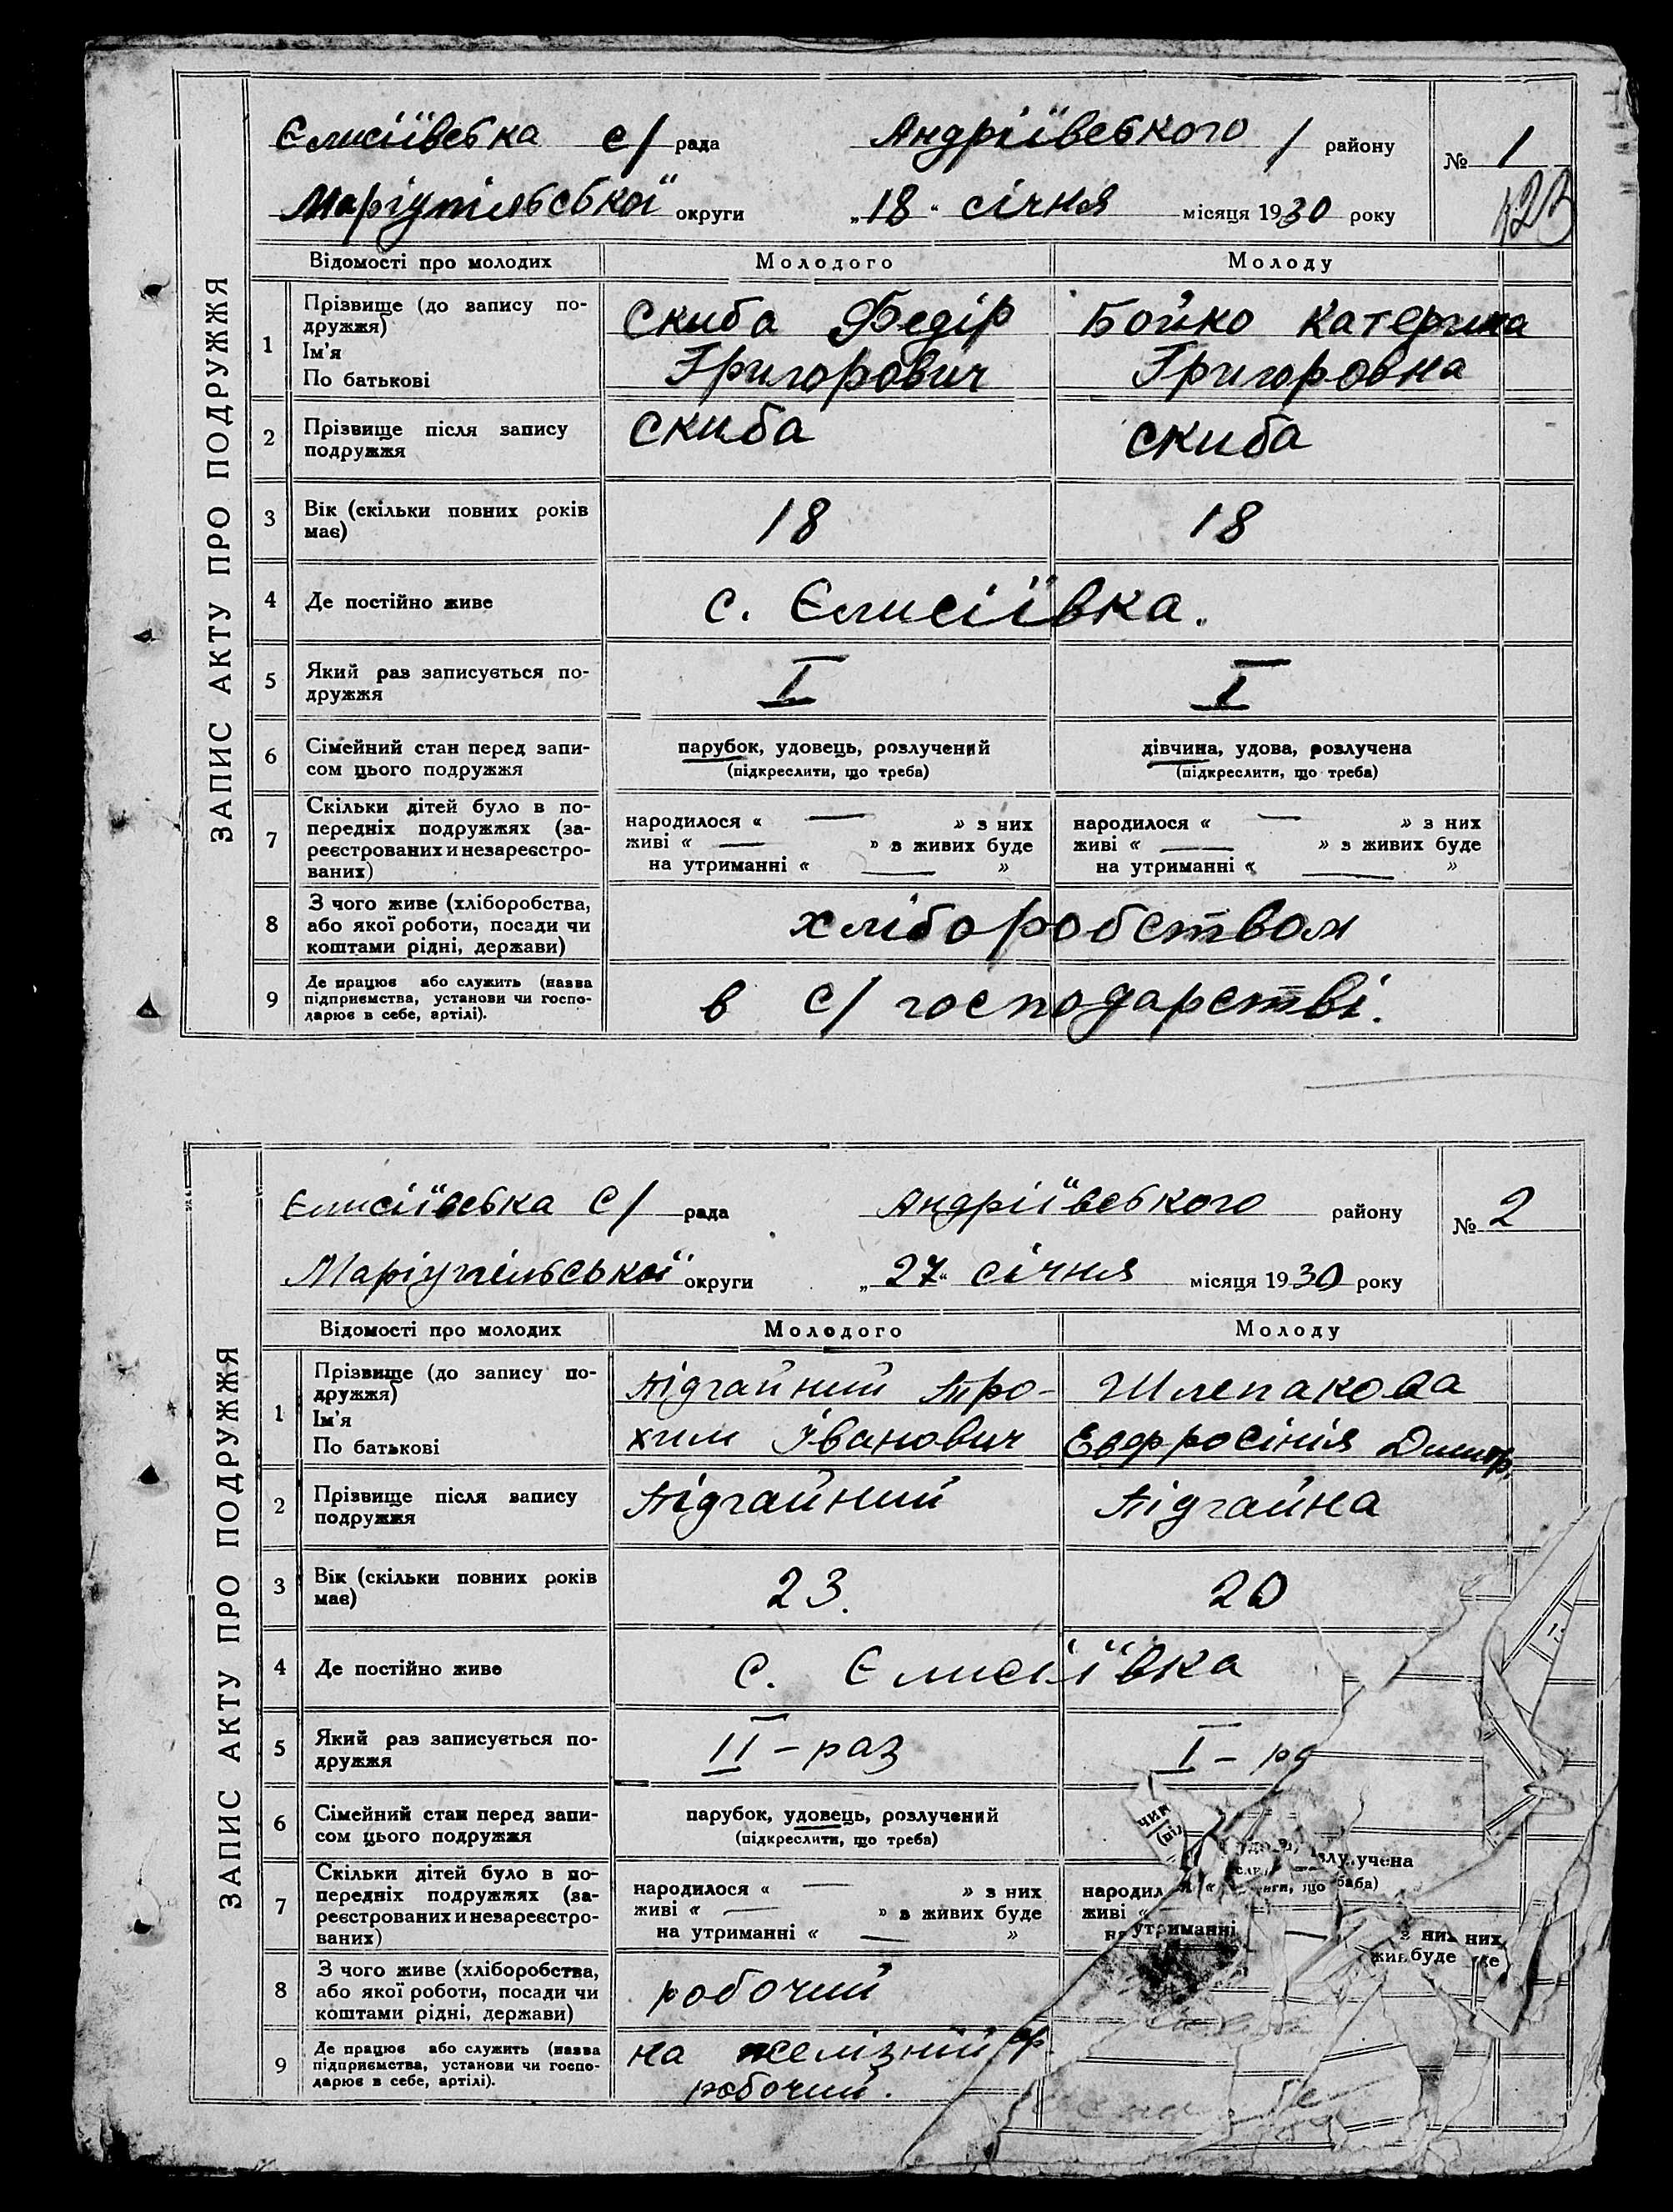 ЗАПИС АКТУ ПРО ПОДРУЖЖЯ
Єлисіївська с/ рада Андріївського / району № 1
Маріупільської округи „18“ січня місяця 1930 року 123
Відомості про молодих Молодого Молоду
1 Прізвище (до запису по-
дружжя)
Ім'я
По батькові
Скиба Федір
Григорович
Бойко Катерина
Григоровна
2 Прізвище після запису
подружжя
Скиба скиба
3 Вік (скільки повних років
має)
18 18
4 Де постійно живе с. Єлисіївка.
5 Який раз записується по-
дружжя
I I
6 Сімейний стан перед запи-
сом цього подружжя
парубок, удовець, розлучений
(підкреслити, що треба)
дівчина, удова, розлучена
(підкреслити, що треба)
7 Скільки дітей було в по-
передніх подружжях (за-
реєстрованих и незареєстро-
ваних)
народилося « — » з них
живі « — » з живих буде
на утриманні « — »
народилося « — » з них
живі « — » з живих буде
на утриманні « — »
8 З чого живе (хліборобства,
або якої роботи, посади чи
коштами рідні, держави)
хліборобством
9 Де працює або служить (назва
підприємства, установи чи госпо-
дарює в себе, артілі).
в с/ господарстві.
ЗАПИС АКТУ ПРО ПОДРУЖЖЯ
Єлисіївська с/ рада Андріївського району № 2
Маріупільської округи „27“ січня місяця 1930 року
Відомості про молодих Молодого Молоду
1 Прізвище (до запису по-
дружжя)
Ім'я
По батькові
Підгайний Тро-
хим Іванович
Шлепакова
Евфросінія Дмитр.
2 Прізвище після запису
подружжя
Підгайний Підгайна
3 Вік (скільки повних років
має)
23. 20
4 Де постійно живе с. Єлисіївка
5 Який раз записується по-
дружжя
II – раз I – ра
6 Сімейний стан перед запи-
сом цього подружжя
парубок, удовець, розлучений
(підкреслити, що треба)
7 Скільки дітей було в по-
передніх подружжях (за-
реєстрованих и незареєстро-
ваних)
народилося « — » з них
живі « — » з живих буде
на утриманні « — »
живі «
утриманні
них
буде
8 З чого живе (хліборобства,
або якої роботи, посади чи
коштами рідні, держави)
робочий
9 Де працює або служить (назва
підприємства, установи чи госпо-
дарює в себе, артілі).
на желізній др.
робочий.